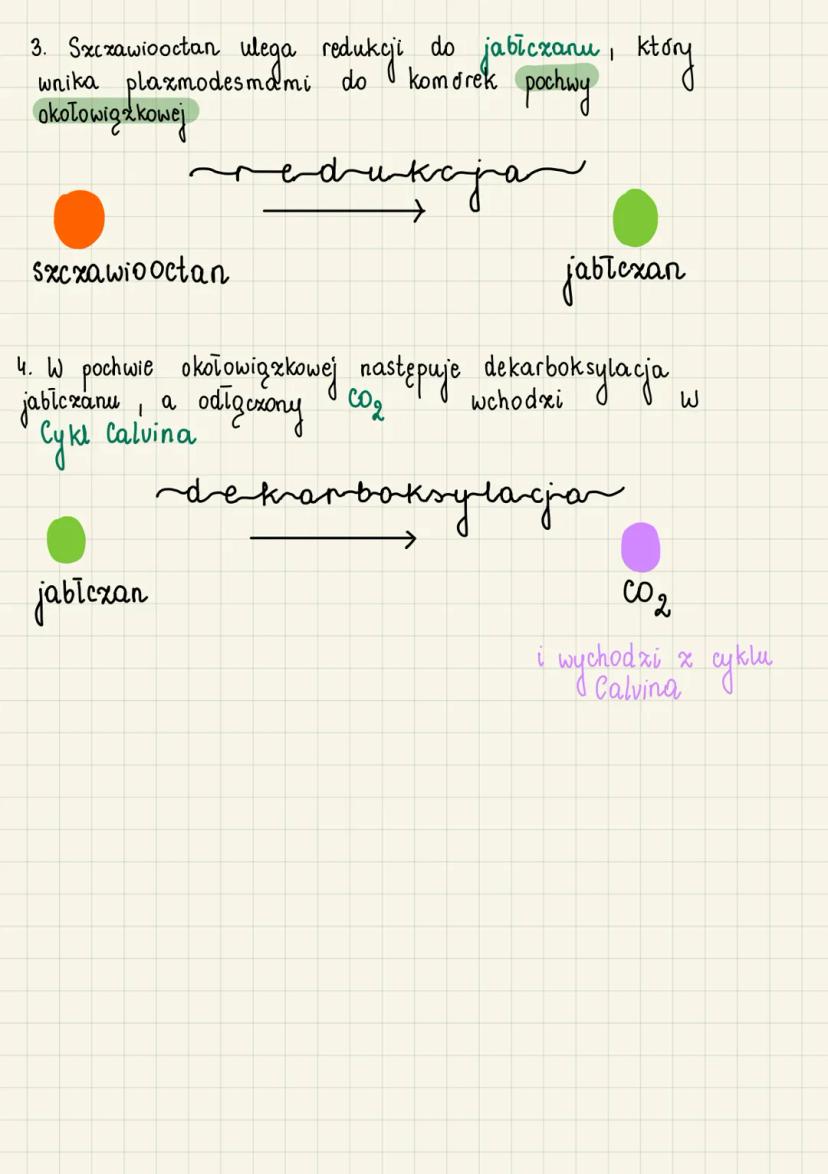 3. Szczawiooctan ulega redukcji do jabłczanu, który
wnika plazmodesmami do komórek pochwy
okołowiązkowej
redukcja
szczawiooctan
jabłczan
4. W pochwie okołowiązkowej następuje dekarboksylacja
jabłczanu, a odłączony CO2 wchodzi w
Cykl Calvina
dekarboksylacja
jabłczan
CO2
i wychodzi z cyklu
Calvina